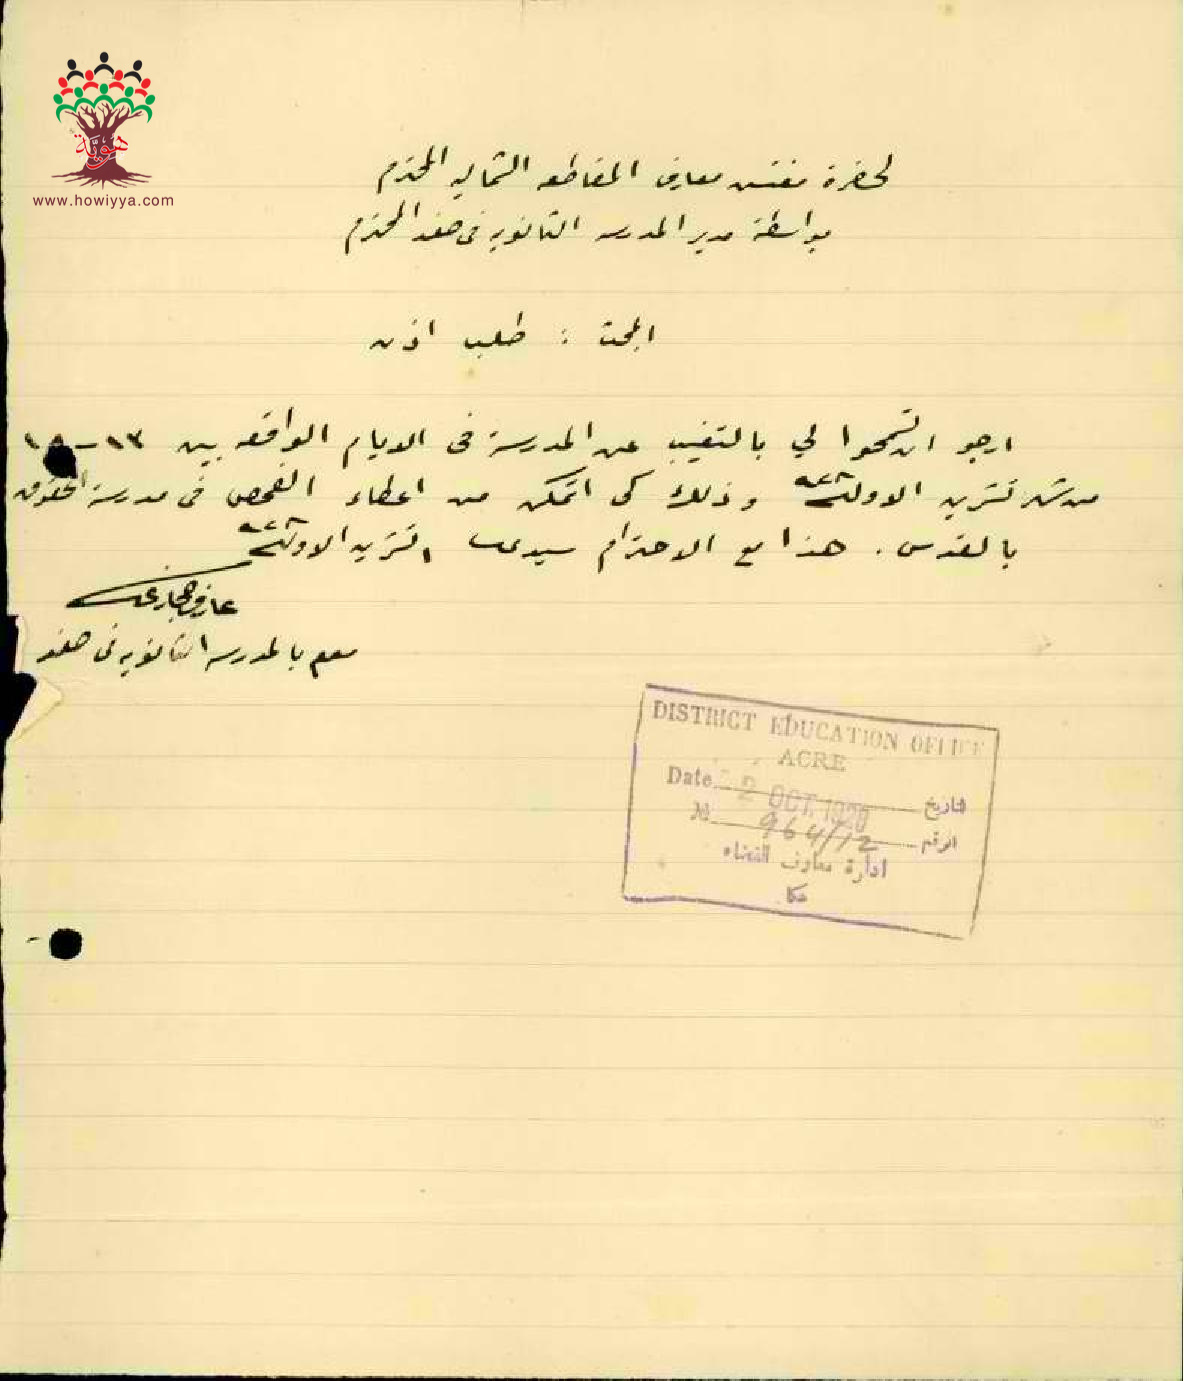 هويّة
www.howiyya.com
لحضرة مفتش معارف المقاطعه الشماليه المحترم
بواسطة مدير المدرسه الثانويه في صفد المحترم
البحث : طلب اذن
ارجو ان تسمحوا لي بالتغيب عن المدرسة في الايام الواقعه بين ١٣ – ١٥
من شهر تشرين الاول سنة ٩٢٨ وذلك كي اتمكن من اعطاء الفحص في مدرسة الحقوق
بالقدس . هذا مع الاحترام سيدي ١ تشرين الاول سنة ٩٢٨
عارف
معلم بالمدرسه الثانويه في صفد
DISTRICT EDUCATION OFFICE
ACRE
Date 2 OCT. 192 تاريخ
No 964/12 الرقم
ادارة معارف القضاء
عكا